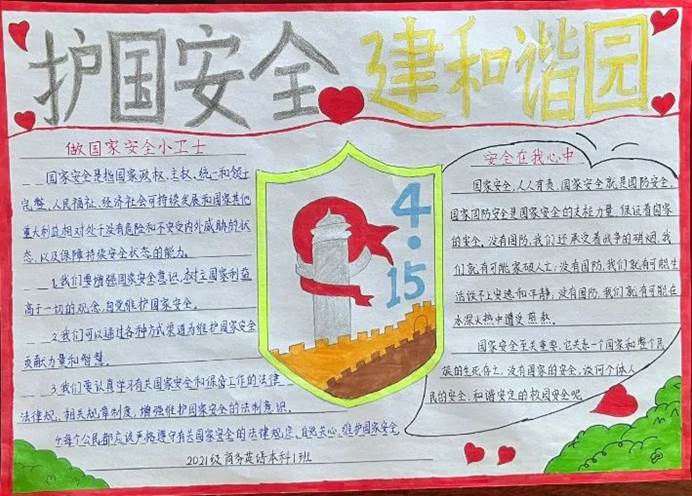 护国安全 建和谐园
做国家安全小卫士
国家安全是指国家政权、主权、统一和领土
完整、人民福祉、经济社会可持续发展和国家其他
重大利益相对处于没有危险和不受内外威胁的状
态,以及保障持续安全状态的能力。
1.我们要增强国家安全意识,树立国家利益
高于一切的观念,自觉维护国家安全。
2.我们可以通过各种方式渠道为维护国家安全
贡献力量和智慧。
3.我们要认真学习有关国家安全和保密工作的法律、
法律规、相关规章制度,增强维护国家安全的法制意识。
4.每个公民都应该严格遵守有关国家安全的法律规定,自觉关心、维护国家安全
2021级商务英语本科1班
4·15
安全在我心中
国家安全,人人有责,国家安全就是国防安全,
国家国防安全是国家安全的支柱力量,保证着国家
的安全。没有国防,我们还承受着战争的硝烟,我
们就有可能家破人亡;没有国防,我们就有可能生
活铁不上安逸和平静;没有国防,我们就有可能在
水深火热中遭受煎熬。
国家安全至关重要,它关系一个国家和整个民
族的生死存亡。没有国家的安全,谈何个体人
民的安全,和谐安定的校园安全呢。